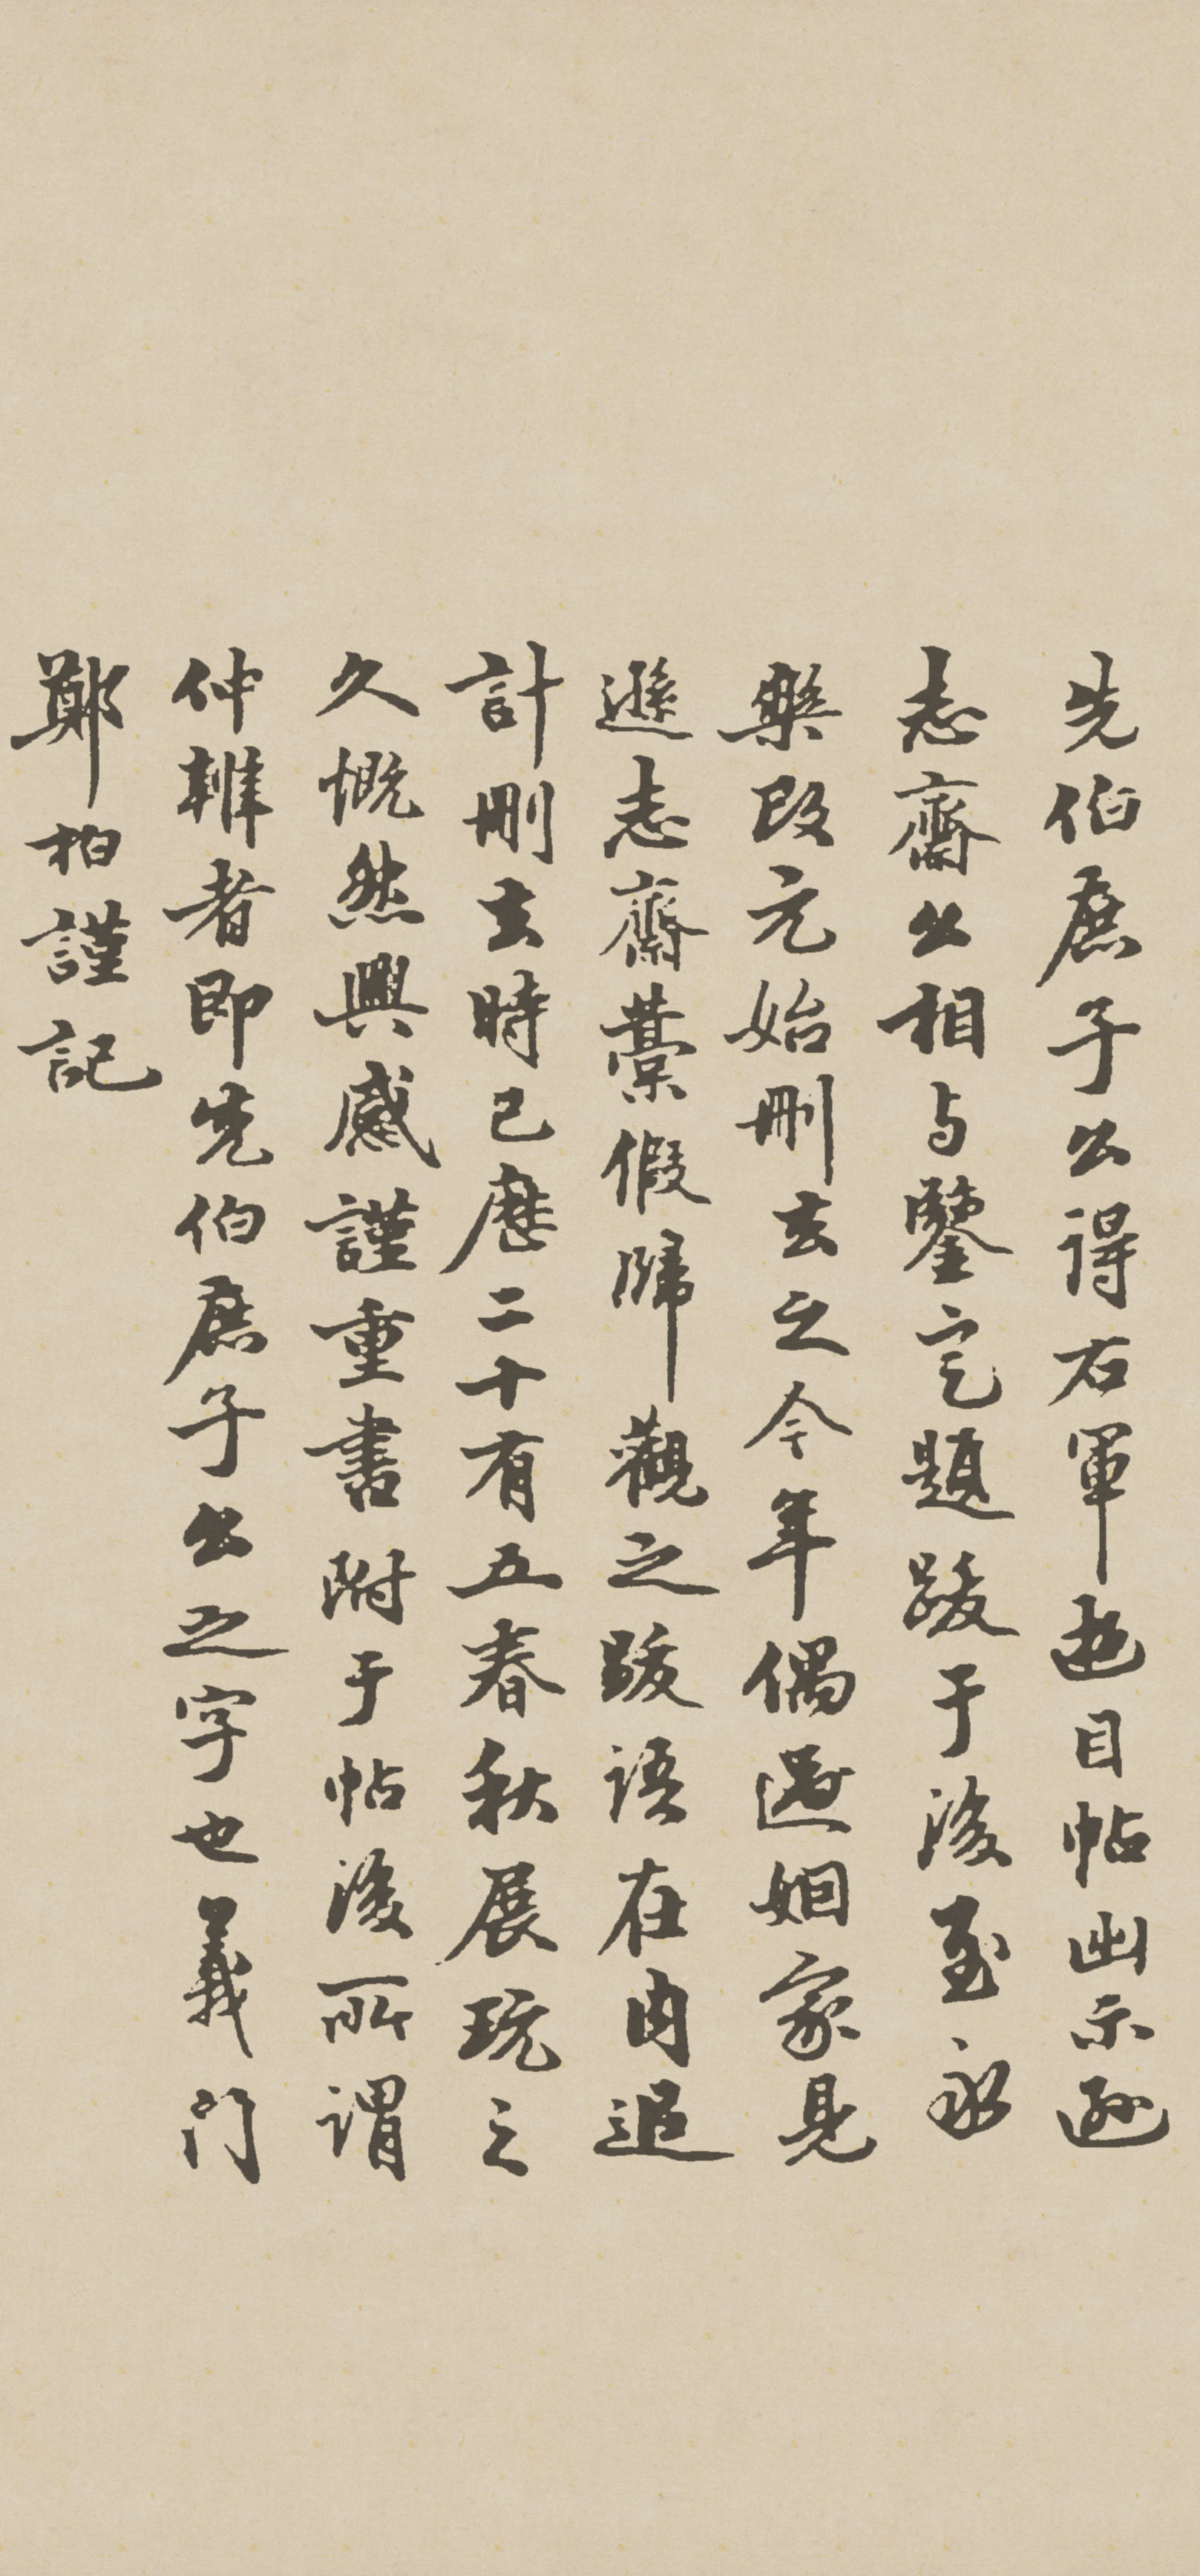 先伯庶子公得右軍遊目帖出示遜
志齋公相与鑒定題跋于後至永
樂改元始刪去之今年偶過姻家見
遜志齋藁假歸觀之跋語在內追
計刪去時已歷二十有五春秋展玩之
久慨然興感謹重書附于帖後所謂
仲辨者即先伯庶子公之字也義門
鄭柏謹記